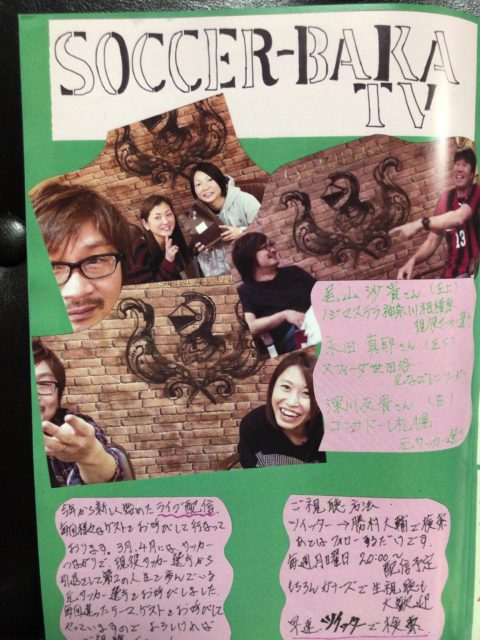 SOCCER-BAKA
TV
13
尾山沙希さん (左上)
ノジマステラ神奈川相模原
現役サッカー選手
永田真耶さん (左下)
スフィーダ世田谷
元なでしこリーガー
深川友貴さん (右)
コンサドーレ札幌
元サッカー選手
今年から新しく始めたライブ配信
毎回様々なゲストをお呼びして行なって
おります。3月、4月には、サッカー
つながりで、現役サッカー選手から
引退をして第2の人生を歩んでいる
元サッカー選手をお呼びしました。
毎回違ったテーマ、ゲストをお呼びして
やっていますのでよろしければ
ご視聴方法
ツイッター→勝村大輔で検索
あとはフォローするだけです。
毎週月曜日 20:00〜
配信予定
もちろんガナーズで生視聴も
大歓迎
早速ツイッターで検索